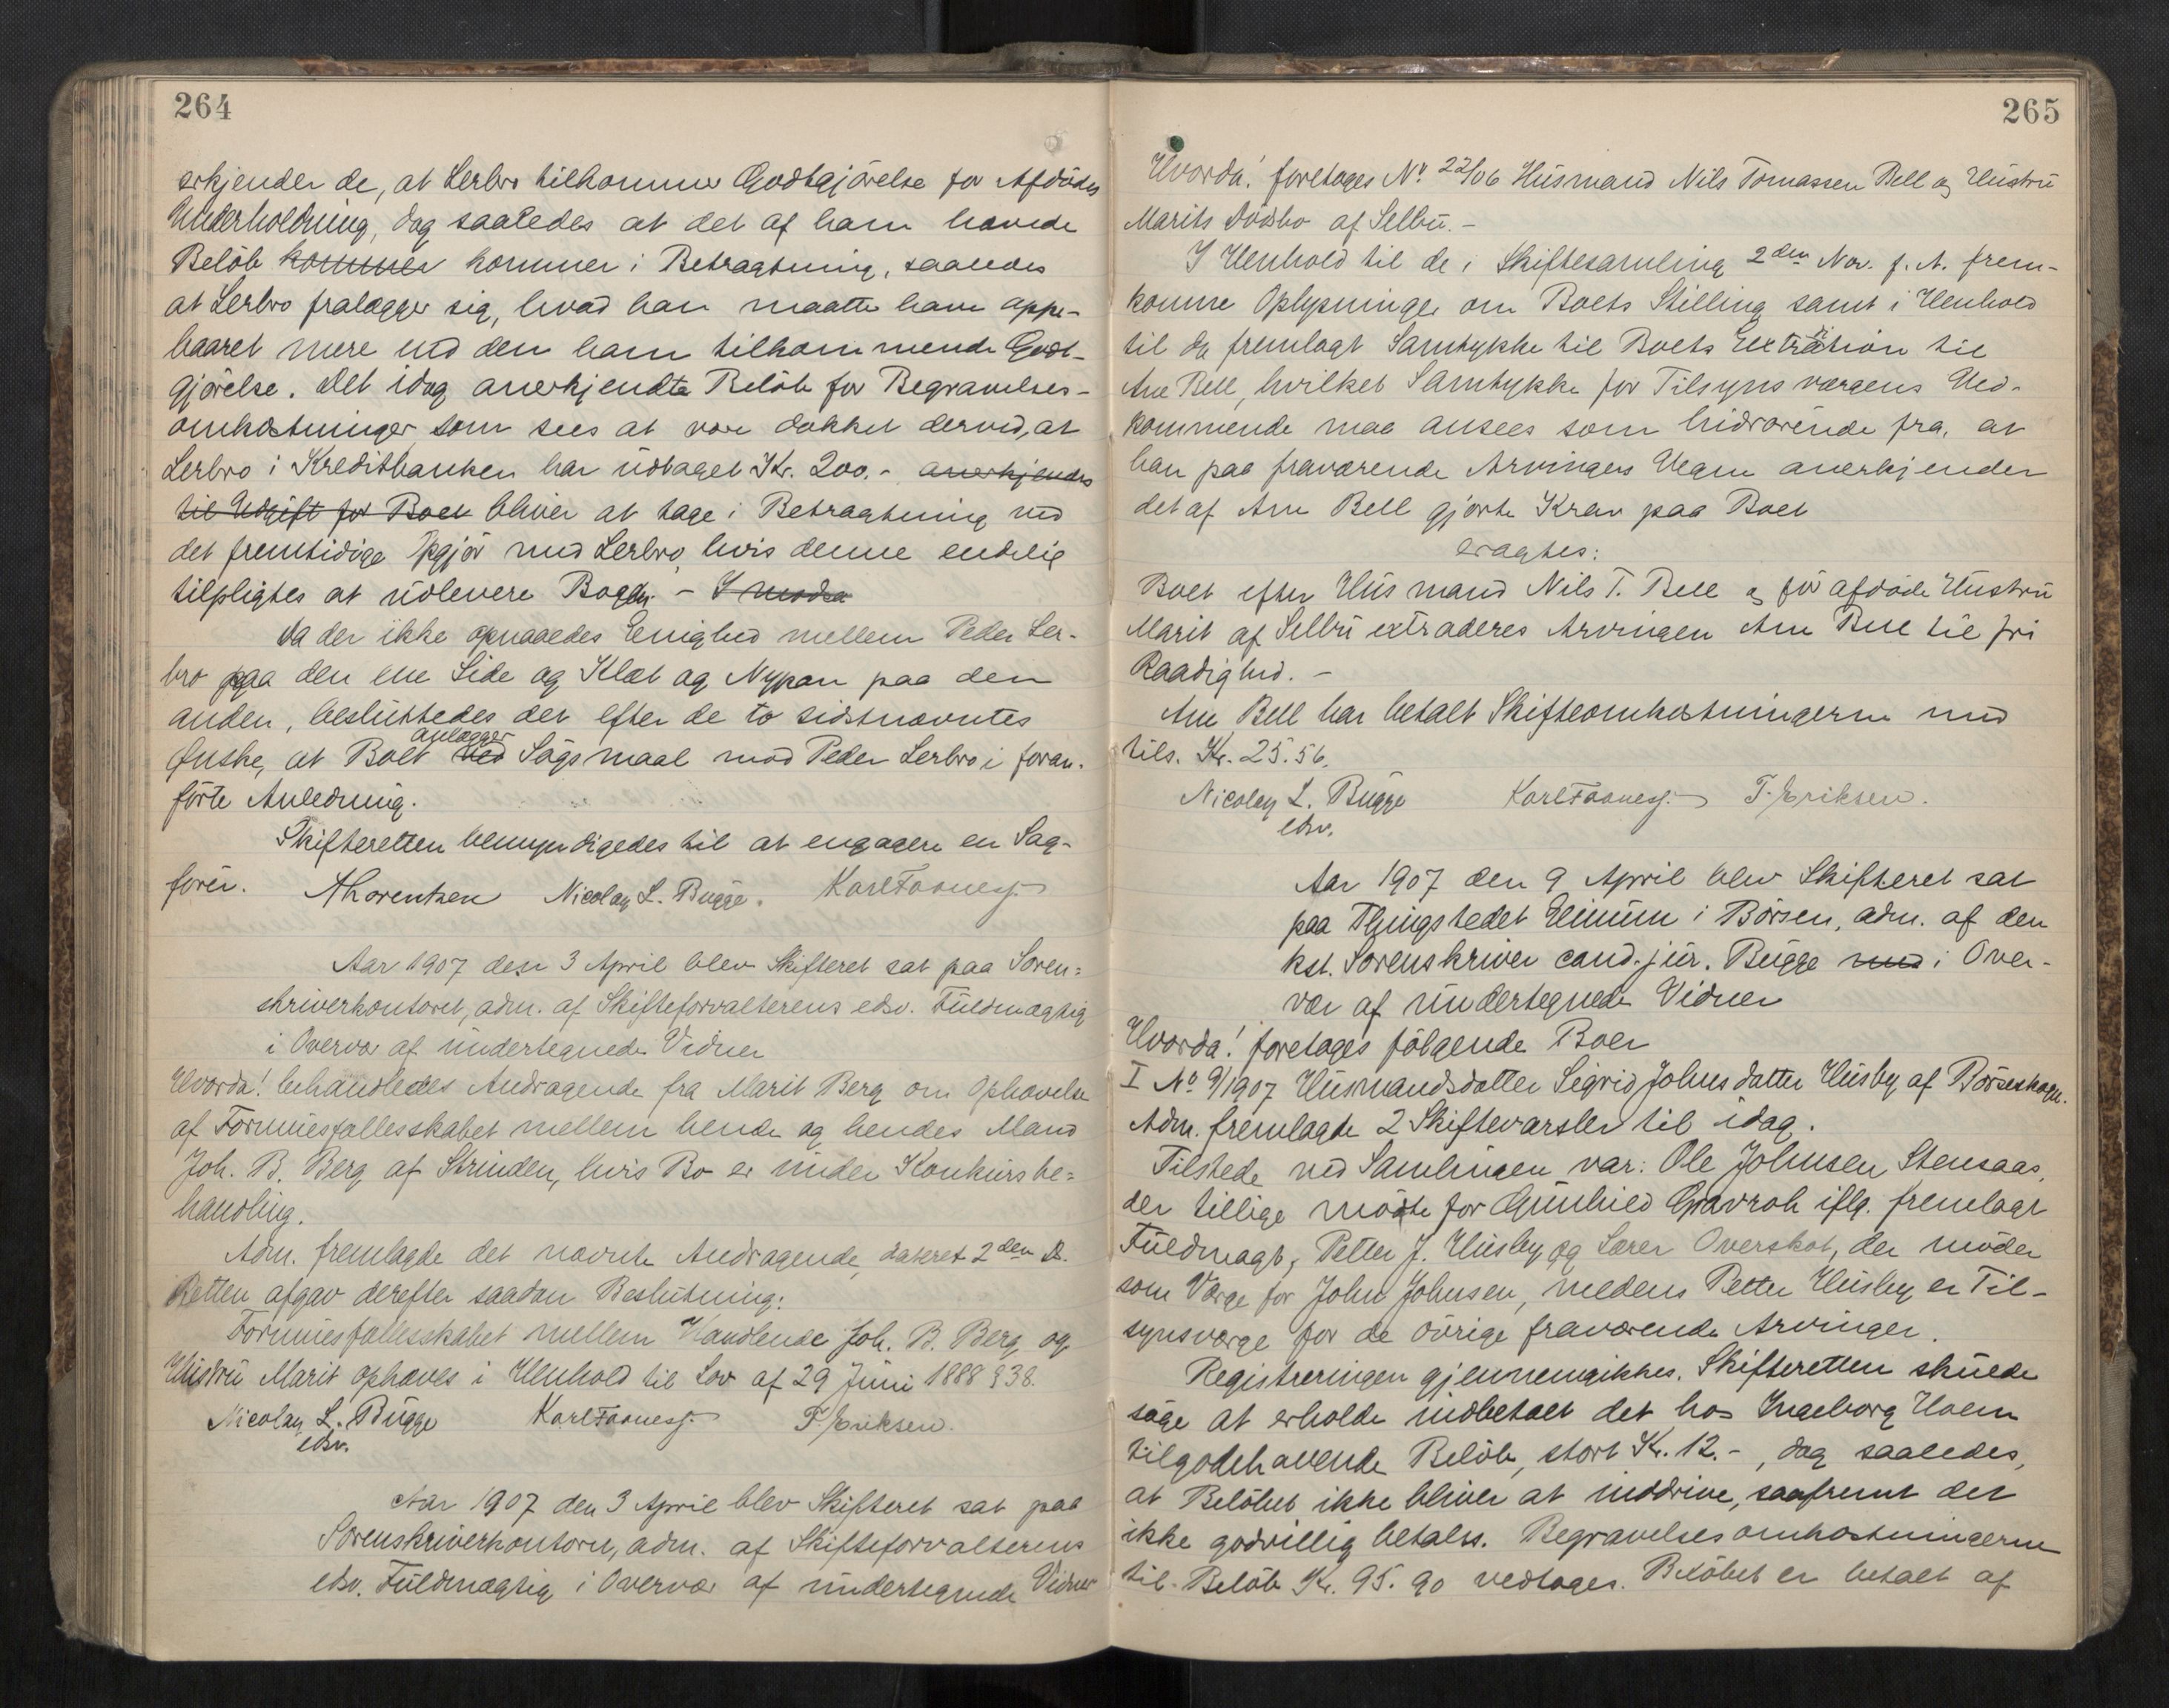 264
erkjender de, at Lerbro tilkommer Godtgjörelse for Afdödes
Underholdning, dog saaledes at det af ham hævede
Belöb kommer kommer i Betragtning, saaledes
at Lerbro fralægger sig, hvad han maatte have oppe-
baaret mere end den ham tilkommende Godt-
gjörelse. Det idag anerkjendte Belöb for Begravelses-
omkostninger som sees at være dækket derved, at
Lerbro i Kreditbanken har udtaget Kr. 200.- anerkjendes
til Udgift for Boet bliver at tage i Betragtning ved
det fremtidige Opgjör med Lerbro, hvis denne endelig
tilpligtes at udlevere Bogen. -
Da der ikke opnaaedes Enighed mellem Peder Ler-
bro paa den ene Side og Klæt og Nypan paa den
anden, besluttedes det efter de to sidstnævntes
Ønske, at Boet anlægger ved Sögsmaal mod Peder Lerbro i foran-
förte Anledning.
Skifteretten bemyndigedes til at engagere en Sag-
förer. A Lorentzen Nicolay L. Bugge. Karl Faanesj.
Aar 1907 den 3 April blev Skifteret sat paa Soren-
skriverkontoret, adm. af Skifteforvalterens edsv. Fuldmægtig
i Overvær af undertegnede Vidner
Hvorda! behandledes Andragende fra Marit Berg om Ophævelse
af Formuesfællesskabet mellem hende og hendes Mand
Joh. B. Berg af Strinden, hvis Bo er under Konkursbe-
handling.
Adm. fremlagde det nævnte Andragende, dateret 2den ds.
Retten afgav derefter saadan Beslutning:
Formuesfællesskabet mellem Handlende Joh. B. Berg og
Hustru Marit ophæves i Henhold til Lov af 29 Juni 1888 § 38.
Nicolay L. Bugge Karl Faanesj. F. Eriksen.
edsv.
Aar 1907 den 3 April blev Skifteret sat paa
Sorenskriverkontoret, adm. af Skifteforvalterens
edsv. Fuldmægtig i Overvær af undertegnede Vidner
265
Hvorda! foretoges No. 22/06 Husmand Nils Tomassen Bell og Hustru
Marits Dödsbo af Selbu. -
I Henhold til de i Skiftesamling 2den Nov. f. A. frem-
komne Oplysninger om Boets Stilling samt i Henhold
til da fremlagt Samtykke til Boets Extradition til
Ane Bell, hvilket Samtykke for Tilsynsværgens Ved-
kommende maa ansees som hidrörende fra, at
han paa fraværende Arvingers Vegne anerkjender
det af Ane Bell gjorte Krav paa Boet
eragtes:
Boet efter Husmand Nils T. Bell og för afdöde Hustru
Marit af Selbu extraderes Arvingen Ane Bell til fri
Raadighed. -
Ane Bell har betalt Skifteomkostningerne med
tils. Kr. 25.56.
Nicolay L. Bugge Karl Faanesj. F. Eriksen.
edsv.
Aar 1907 den 9 April blev Skifteret sat
paa Thingstedet Elinum i Börsen, adm. af den
kst. Sorenskriver cand. jur. Bugge med i Over-
vær af undertegnede Vidner
Hvorda! foretoges fölgende Boer
I No. 9/1907 Husmandsdatter Sigrid Johnsdatter Husby af Börseskogn.
Adm. fremlagde 2 Skiftevarsler til idag.
Tilstede ved Samlingen var: Ole Johnsen Stensaas,
der tillige mödte for Gunhild Gravrok iflg. fremlagt
Fuldmagt, Petter J. Husby og Lærer Overskot, der möder
som Værge for John Johnsen, medens Petter Husby er Til-
synsværge for de övrige fraværende Arvinger.
Registreringen gjennemgikkes. Skifteretten skulde
söge at erholde indbetalt det hos Ingeborg Hoem
tilgodehavende Belöb, stort Kr. 12.-, dog saaledes,
at Belöbet ikke bliver at inddrive, saafremt det
ikke godvillig betales. Begravelsesomkostningerne
til Belöb Kr. 95.90 vedtoges. Belöbet er betalt af